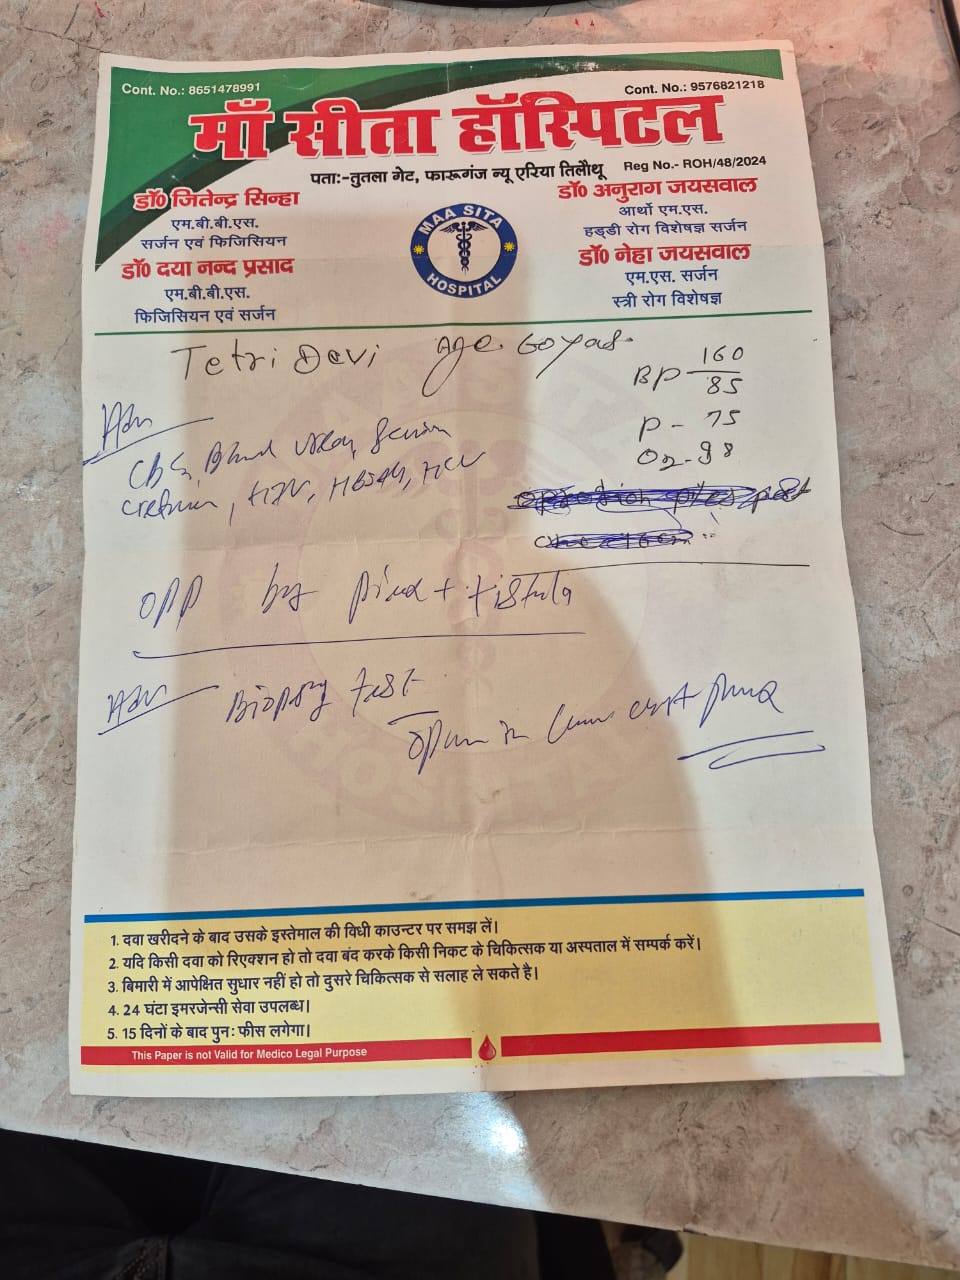 Cont. No.: 8651478991
Cont. No.: 9576821218
माँ सीता हॉस्पिटल
पता:-तुतला गेट, फारूगंज न्यू एरिया तिलौथू
Reg No.- ROH/48/2024
डॉ० जितेन्द्र सिन्हा
एम.बी.बी.एस.
सर्जन एवं फिजिसियन
डॉ० दया नन्द प्रसाद
एम.बी.बी.एस.
फिजिसियन एवं सर्जन
MAA SITA
HOSPITAL
डॉ० अनुराग जयसवाल
आर्थो एम.एस.
हड्डी रोग विशेषज्ञ सर्जन
डॉ० नेहा जयसवाल
एम.एस. सर्जन
स्त्री रोग विशेषज्ञ
Tetri Devi Age. 60
BP - 160
85
P - 75
O2 - 98
Adv
CBC, Blood
HIV, HBsAg, HCV
opp by + fistula
Adv Biopsy test
1. दवा खरीदने के बाद उसके इस्तेमाल की विधी काउन्टर पर समझ लें।
2. यदि किसी दवा को रिएक्शन हो तो दवा बंद करके किसी निकट के चिकित्सक या अस्पताल में सम्पर्क करें।
3. बिमारी में आपेक्षित सुधार नहीं हो तो दुसरे चिकित्सक से सलाह ले सकते है।
4. 24 घंटा इमरजेन्सी सेवा उपलब्ध।
5. 15 दिनों के बाद पुनः फीस लगेगा।
This Paper is not Valid for Medico Legal Purpose